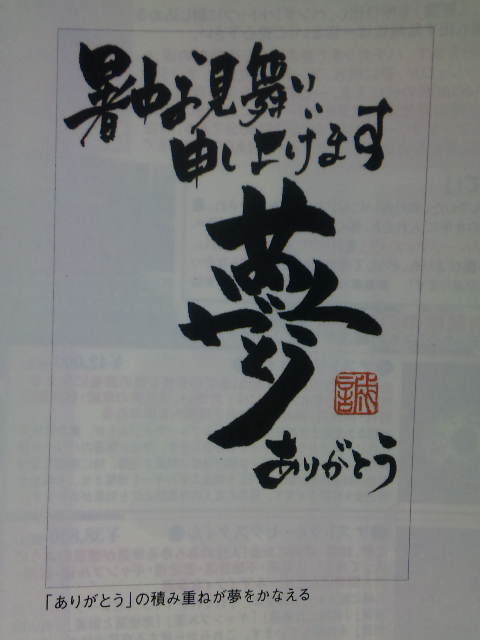 暑中お見舞い
申し上げます
夢
誠
ありがとう
「ありがとう」の積み重ねが夢をかなえる